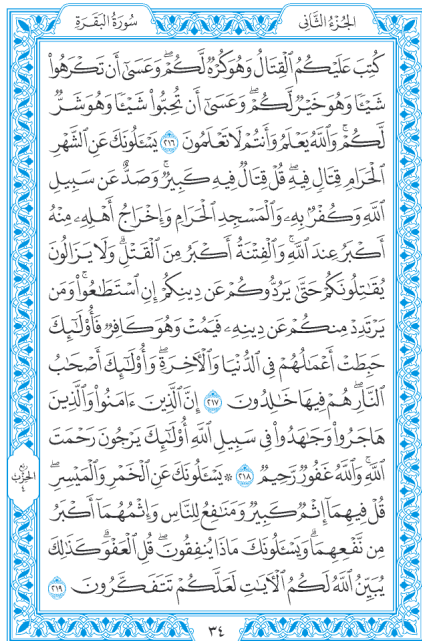 الجُزْءُ الثَّانِي
سُورَةُ البَقَرَةِ
كُتِبَ عَلَيْكُمُ ٱلْقِتَالُ وَهُوَ كُرْهٌ لَّكُمْۖ وَعَسَىٰٓ أَن تَكْرَهُوا۟
شَيْـًٔا وَهُوَ خَيْرٌ لَّكُمْۖ وَعَسَىٰٓ أَن تُحِبُّوا۟ شَيْـًٔا وَهُوَ شَرٌّ
لَّكُمْۚ وَٱللَّهُ يَعْلَمُ وَأَنتُمْ لَا تَعْلَمُونَ ٢١٦ يَسْـَٔلُونَكَ عَنِ ٱلشَّهْرِ
ٱلْحَرَامِ قِتَالٍ فِيهِۖ قُلْ قِتَالٌ فِيهِ كَبِيرٌۚ وَصَدٌّ عَن سَبِيلِ
ٱللَّهِ وَكُفْرٌۢ بِهِۦ وَٱلْمَسْجِدِ ٱلْحَرَامِ وَإِخْرَاجُ أَهْلِهِۦ مِنْهُ
أَكْبَرُ عِندَ ٱللَّهِۚ وَٱلْفِتْنَةُ أَكْبَرُ مِنَ ٱلْقَتْلِۗ وَلَا يَزَالُونَ
يُقَـٰتِلُونَكُمْ حَتَّىٰ يَرُدُّوكُمْ عَن دِينِكُمْ إِنِ ٱسْتَطَـٰعُوا۟ۚ وَمَن
يَرْتَدِدْ مِنكُمْ عَن دِينِهِۦ فَيَمُتْ وَهُوَ كَافِرٌ فَأُو۟لَـٰٓئِكَ
حَبِطَتْ أَعْمَـٰلُهُمْ فِى ٱلدُّنْيَا وَٱلْـَٔاخِرَةِۖ وَأُو۟لَـٰٓئِكَ أَصْحَـٰبُ
ٱلنَّارِۖ هُمْ فِيهَا خَـٰلِدُونَ ٢١٧ إِنَّ ٱلَّذِينَ ءَامَنُوا۟ وَٱلَّذِينَ
هَاجَرُوا۟ وَجَـٰهَدُوا۟ فِى سَبِيلِ ٱللَّهِ أُو۟لَـٰٓئِكَ يَرْجُونَ رَحْمَتَ
ٱللَّهِۚ وَٱللَّهُ غَفُورٌ رَّحِيمٌ ٢١٨ ۞ يَسْـَٔلُونَكَ عَنِ ٱلْخَمْرِ وَٱلْمَيْسِرِۖ
قُلْ فِيهِمَآ إِثْمٌ كَبِيرٌ وَمَنَـٰفِعُ لِلنَّاسِ وَإِثْمُهُمَآ أَكْبَرُ
مِن نَّفْعِهِمَاۗ وَيَسْـَٔلُونَكَ مَاذَا يُنفِقُونَۖ قُلِ ٱلْعَفْوَۗ كَذَٰلِكَ
يُبَيِّنُ ٱللَّهُ لَكُمُ ٱلْـَٔايَـٰتِ لَعَلَّكُمْ تَتَفَكَّرُونَ ٢١٩
ربع
الحزب
٤
٣٤